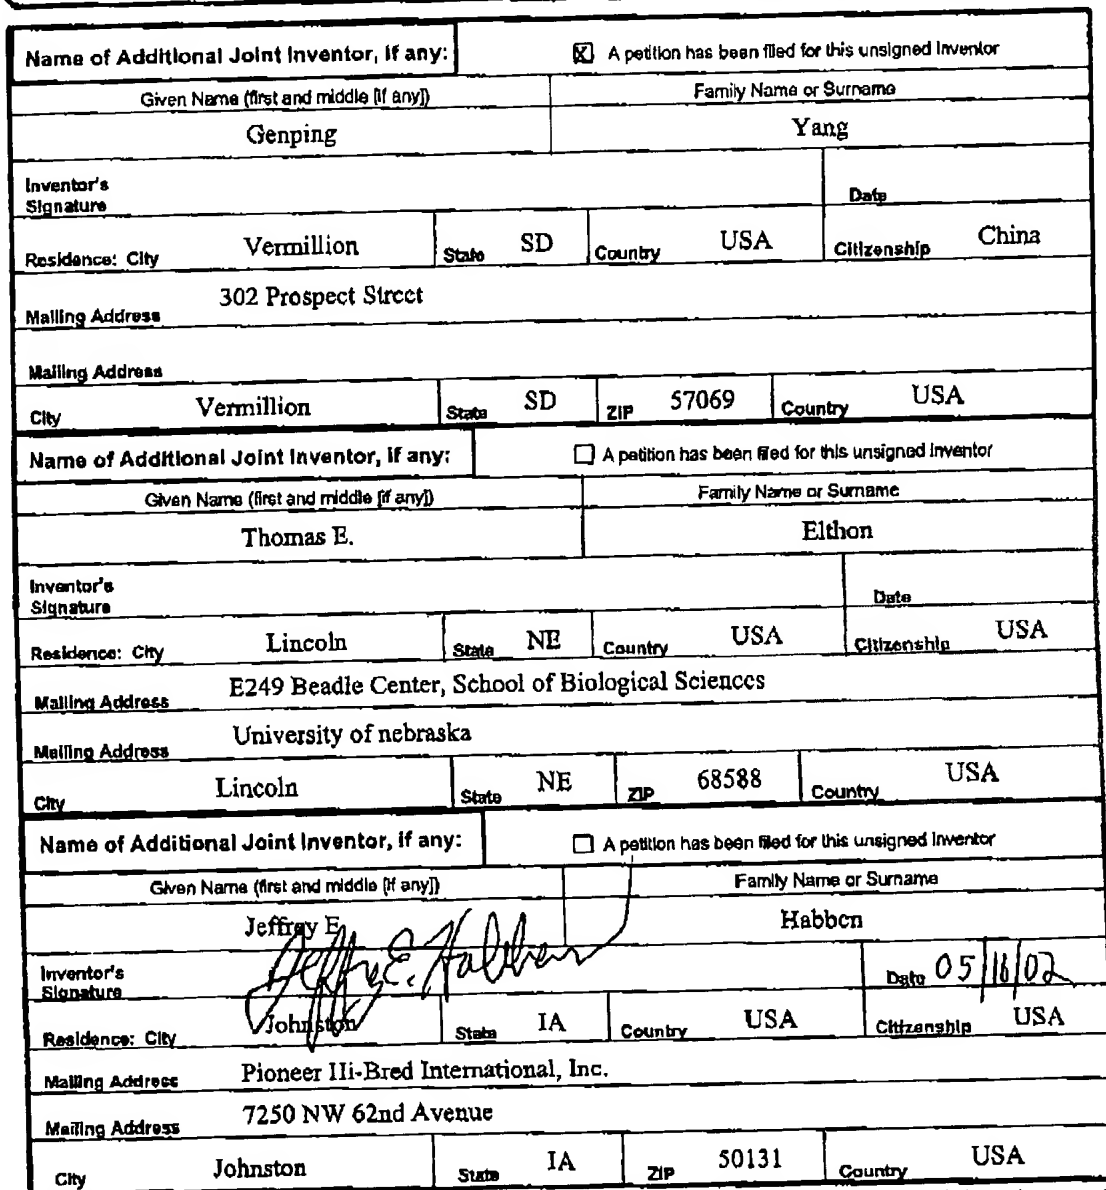 Name of Additional Joint Inventor, if any: ☒ A petition has been filed for this unsigned inventor
Given Name (first and middle [if any]) Family Name or Surname
Genping Yang
Inventor's Signature Date
Residence: City Vermillion State SD Country USA Citizenship China
Mailing Address 302 Prospect Street
Mailing Address
City Vermillion State SD ZIP 57069 Country USA
Name of Additional Joint Inventor, if any: ☐ A petition has been filed for this unsigned inventor
Given Name (first and middle [if any]) Family Name or Surname
Thomas E. Elthon
Inventor's Signature Date
Residence: City Lincoln State NE Country USA Citizenship USA
Mailing Address E249 Beadle Center, School of Biological Sciences
Mailing Address University of nebraska
City Lincoln State NE ZIP 68588 Country USA
Name of Additional Joint Inventor, if any: ☐ A petition has been filed for this unsigned inventor
Given Name (first and middle [if any]) Family Name or Surname
Jeffrey E. Habben
Inventor's Signature Jeffrey E. Habben Date 05/16/02
Residence: City Johnston State IA Country USA Citizenship USA
Mailing Address Pioneer Hi-Bred International, Inc.
Mailing Address 7250 NW 62nd Avenue
City Johnston State IA ZIP 50131 Country USA